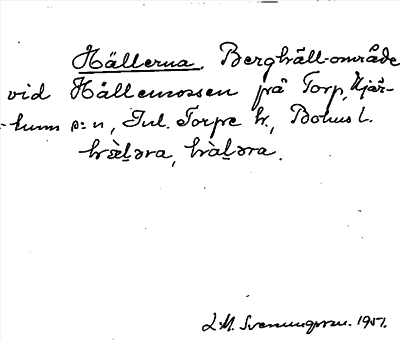 Hällerna, Berghäll-område
vid Hällemossen på Torp, Njär-
-hums s:n, Inl. Torpe hr., Bohusl.
L.M. Svenungsson. 1951.